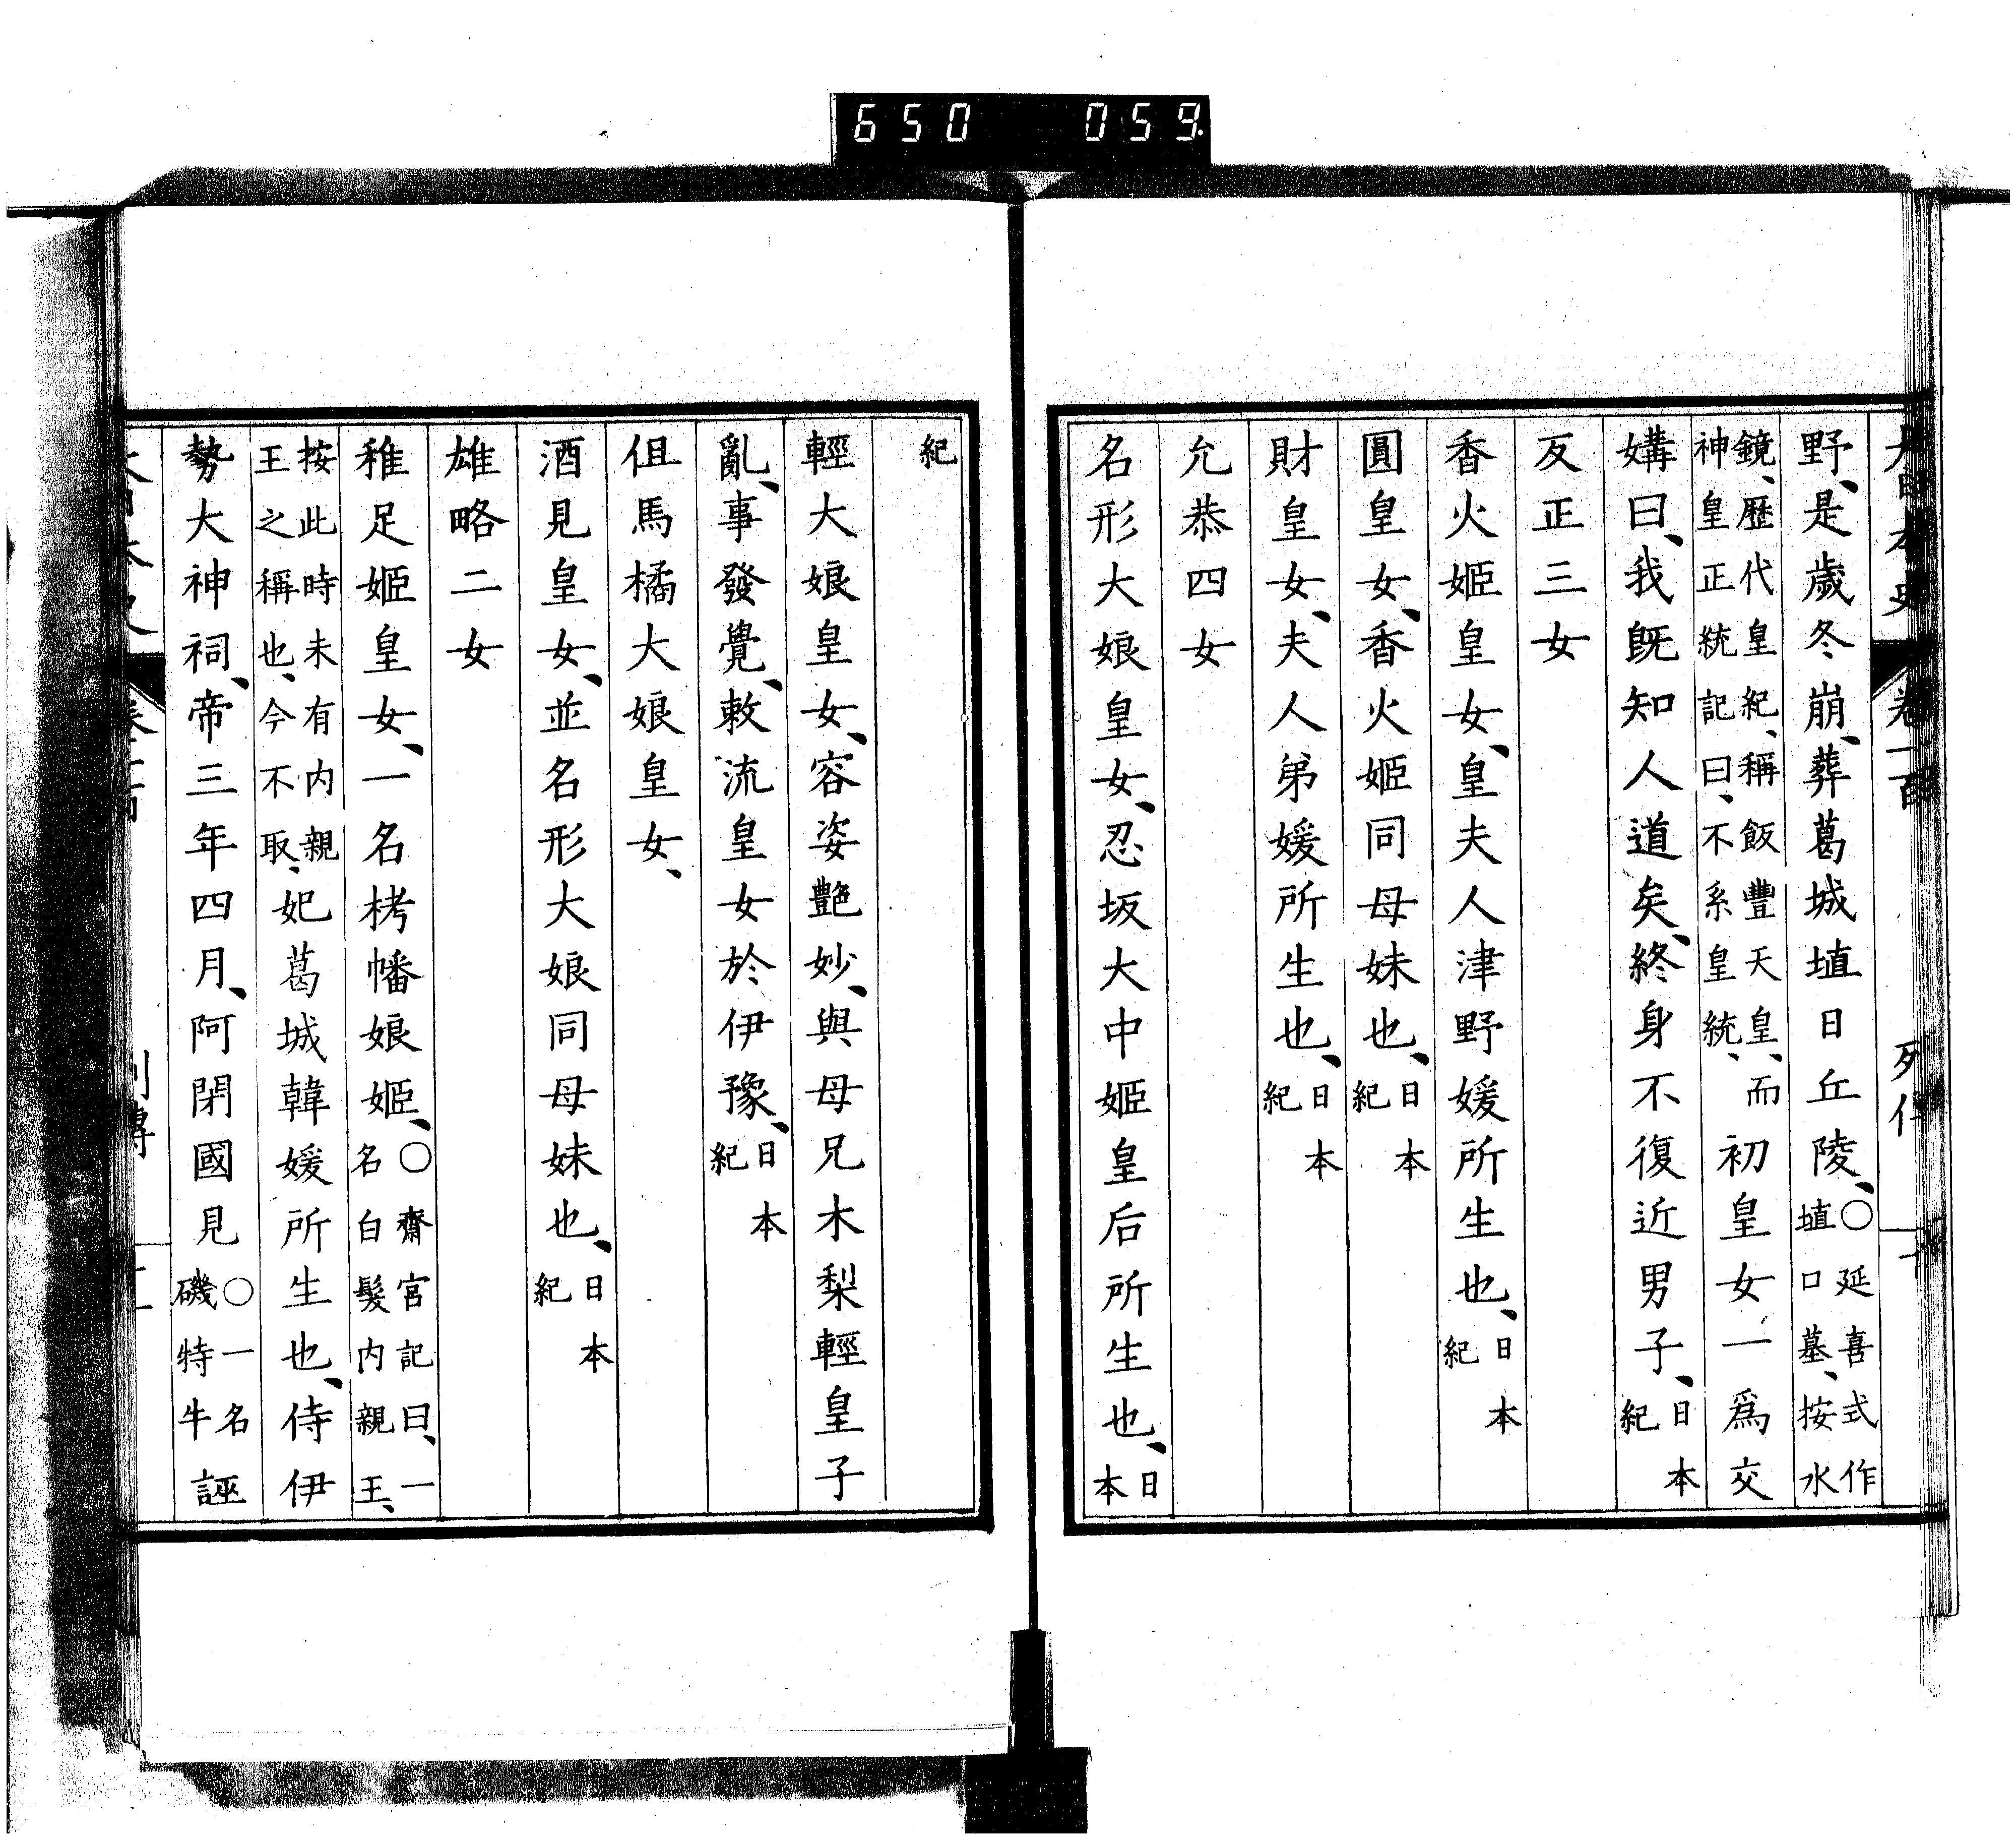 650 059
野、是歲冬崩、葬葛城埴日丘陵、○延喜式作埴口墓、按水
鏡、歷代皇紀、稱飯豐天皇、而神皇正統記曰、不系皇統、初皇女一爲交
媾曰、我既知人道矣、終身不復近男子、日本紀
反正三女
香火姬皇女、皇夫人津野媛所生也、日本紀
圓皇女、香火姬同母妹也、日本紀
財皇女、夫人弟媛所生也、日本紀
允恭四女
名形大娘皇女、忍坂大中姬皇后所生也、日本
紀
輕大娘皇女、容姿艷妙、與母兄木梨輕皇子
亂、事發覺、敕流皇女於伊豫、日本紀
但馬橘大娘皇女、
酒見皇女、並名形大娘同母妹也、日本紀
雄略二女
稚足姬皇女、一名栲幡娘姬、○齋宮記曰、一名白髮內親王、
按此時未有內親王之稱也、今不取、妃葛城韓媛所生也、侍伊
勢大神祠、帝三年四月、阿閉國見○一名磯特牛誣